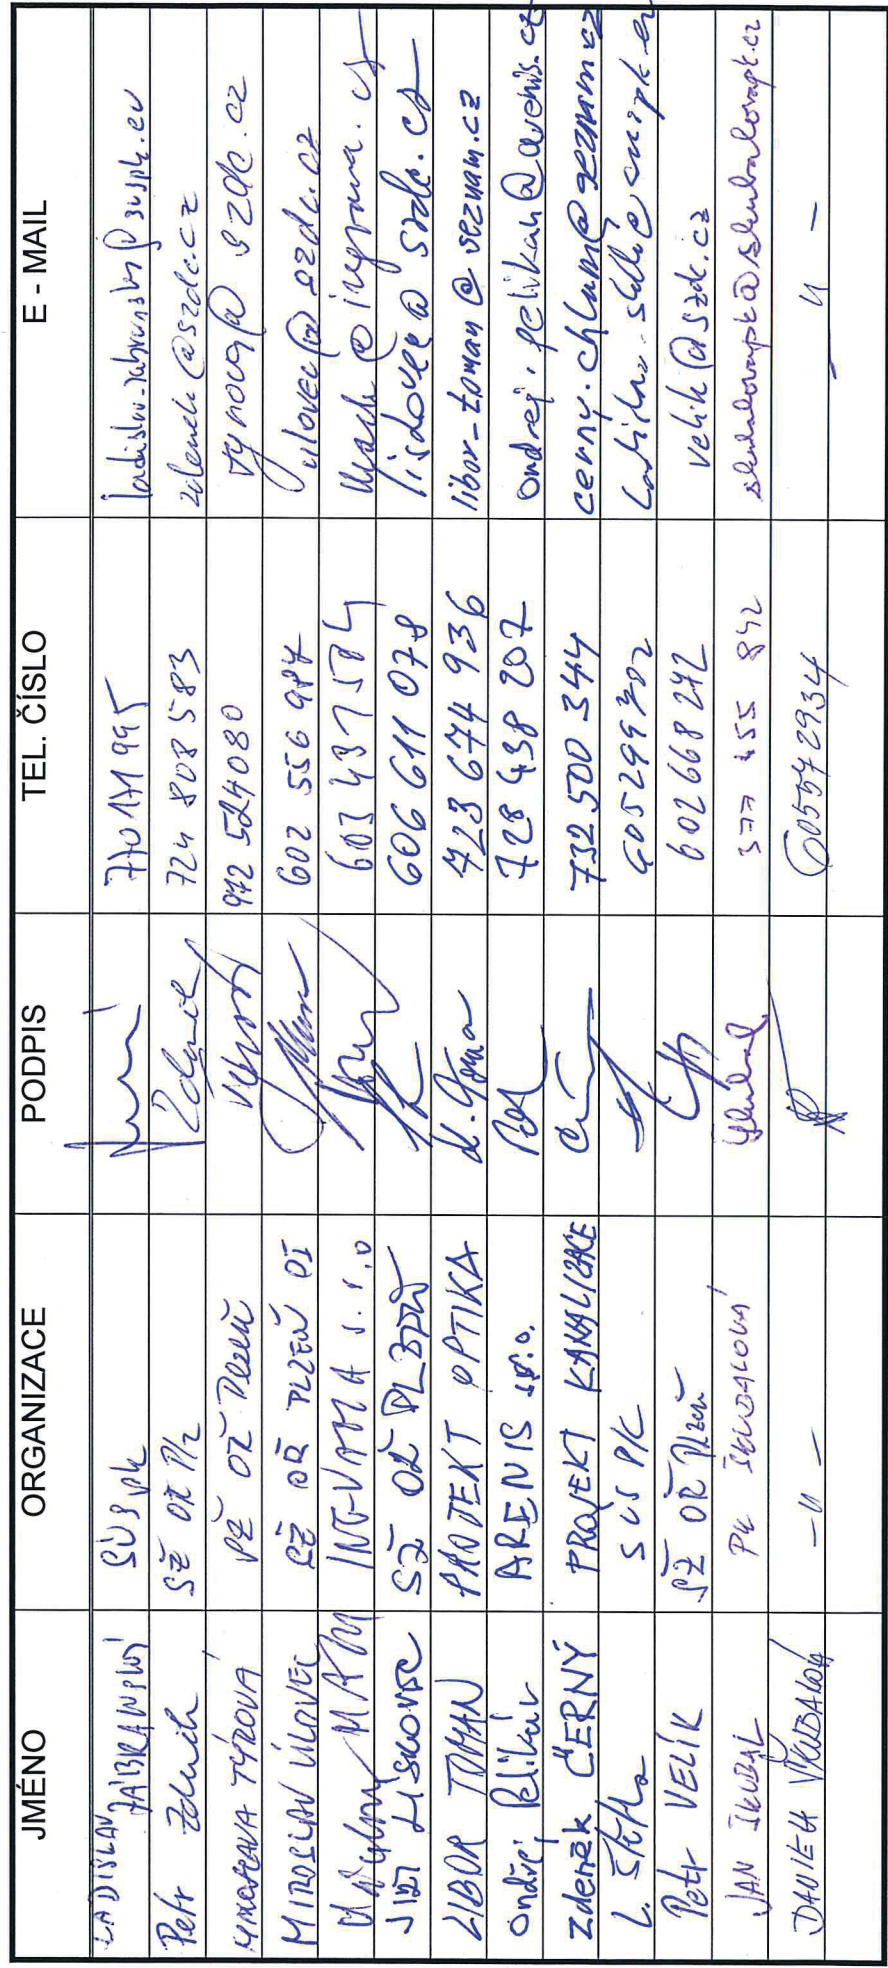 JMÉNO ORGANIZACE PODPIS TEL. ČÍSLO E - MAIL
LADISLAV ZÁBRANSKÝ SÚSPK 770 171 995
Petr Zdeněk SŽ OŘ Plz 724 808 583 zdenek@szdc.cz
TÝROVÁ SŽ OŘ Plzeň 972 524080 tyrova@szdc.cz
MIROSLAV ÚLOVEC SŽ OŘ PLZEŇ 602 556 987 ulovec@szdc.cz
INGVAMA s.r.o 603 437 584
JIŘÍ LISKOVEC SŽ OŘ PLZEŇ 606 611 078 liskovec@szdc.cz
LIBOR TOMAN PROJEKT OPTIKA 723 674 936 libor-toman@seznam.cz
Ondřej Pelikán ARENIS s.r.o. 728 438 207 ondrej.pelikan@arenis.cz
Zdeněk ČERNÝ PROJEKT KANALIZACE 732 500 344 cerny.chlum@seznam.cz
L. SÚS PK 605299702
Petr VELÍK SŽ OŘ Plzeň 602668272 velik@szdc.cz
JAN ŠKUBAL PK ŠKUBALOVÁ 377 455 842 skubalovapk@skubalovapk.cz
ŠKUBALOVÁ -"- 605572934 -"-